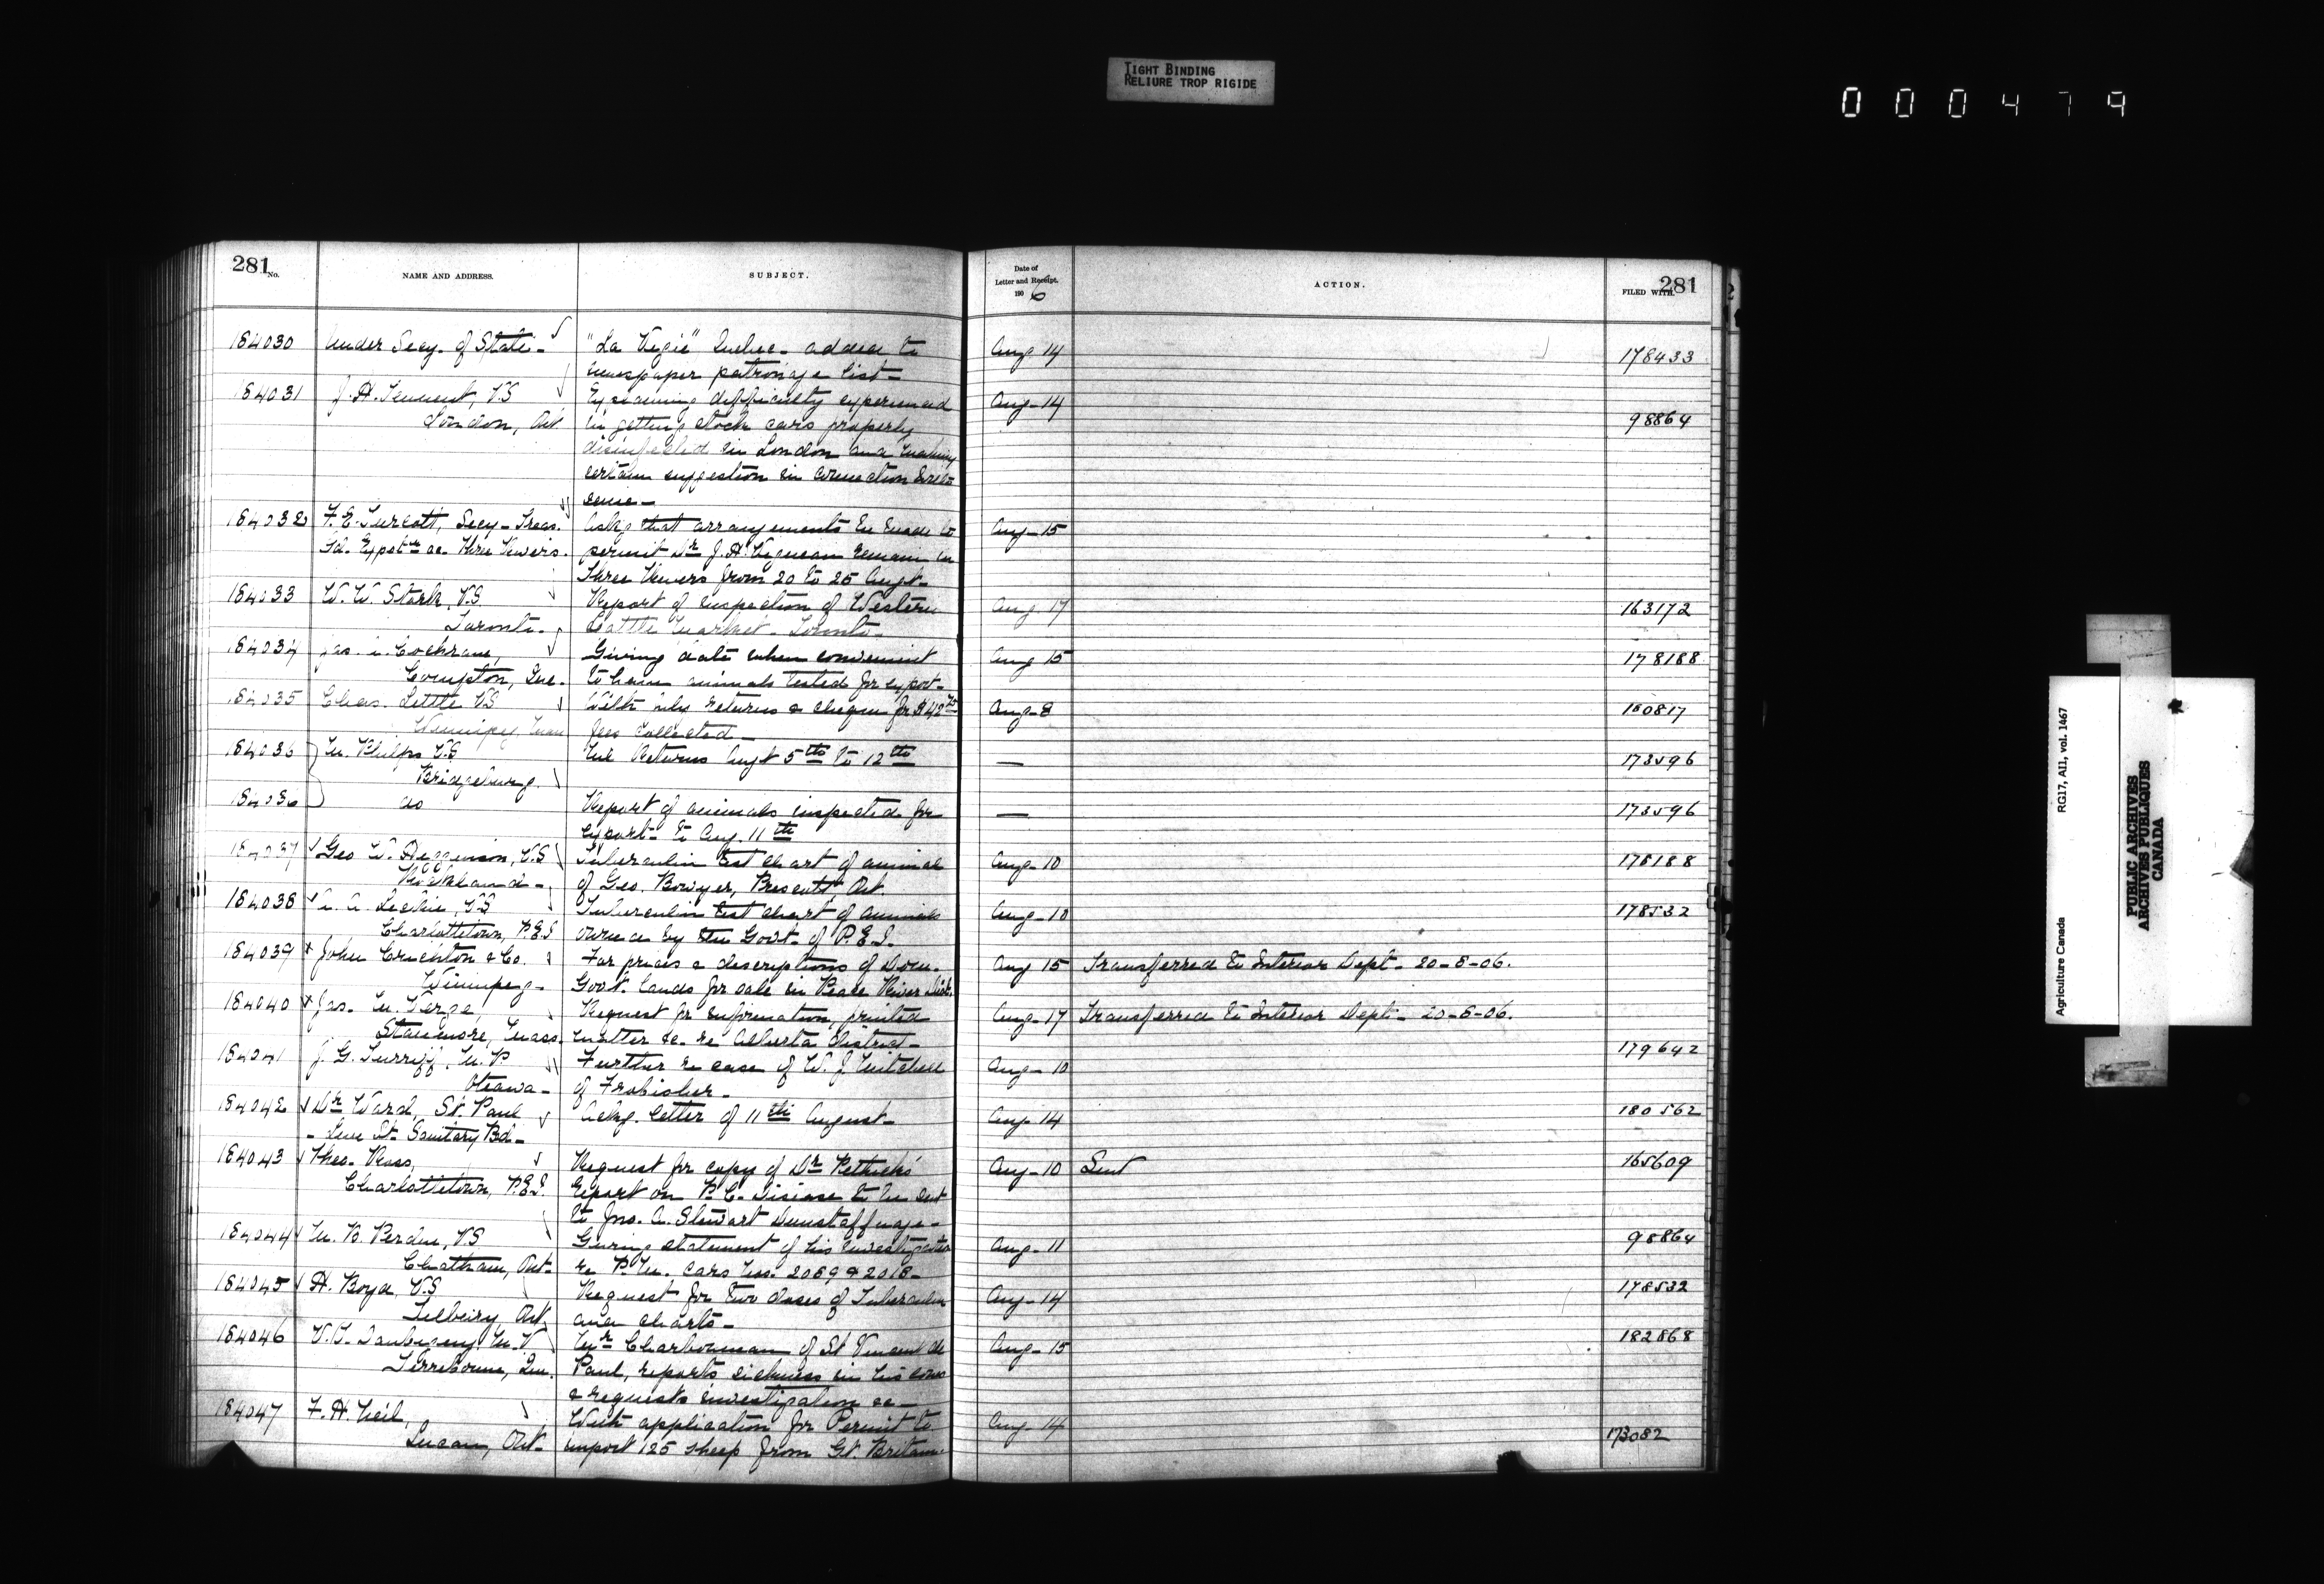 TIGHT BINDING
RELIURE TROP RIGIDE
000479
281 No.
NAME AND ADDRESS.
SUBJECT.
Date of
Letter and Receipt.
1906
ACTION.
FILED WITH.
281
184030 Under Secy. of State "La Vigie" Quebec - added to Aug 14 178433
newspaper patronage list
184031 J. H. Tennent, V.S difficulty experienced Aug-14
London, Ont in getting stock cars properly 98864
disinfected in London and making
certain suggestion in connection
same
184032 F. E. Turcott, Secy-Treas. Asks that arrangements be made to Aug-15
Three Rivers. permit Dr J. H. Vigneau remain in
Three Rivers from 20 to 25 Augt
184033 W. W. Stork, V.S Report of inspection of Western Aug. 17 163172
Toronto. Cattle Market. Toronto
184034 Jas. A. Cochrane, Giving date when convenient Aug 15 178188
Compton, Que. to have animals tested for export
184035 Chas. Little VS With returns & cheque for $42 Aug-8 150817
Winnipeg, Man fees collected
184036 V.S Returns Augt 5th to 12th — 173596
Bridgeburg.
184036 do Report of animals inspected for — 173596
export to Aug. 11th
184037 Geo W. Higginson, V.S Tuberculin test chart of animal Aug-10 178188
Rockland of Geo. Bowyer, Prescott, Ont.
184038 A. A. Leckie, V.S Tuberculin test chart of animals Aug-10 178532
Charlottetown, P.E.I owned by the Govt. of P.E.I.
184039 x John Crichton & Co. For prices & descriptions of Dom. Aug 15 Transferred to Interior Dept. 20-8-06.
Winnipeg Govt. lands for sale in Peace River Dist.
184040 x Jas. M. Request for information, printed Aug-17 Transferred to Interior Dept. 20-8-06.
Mass. matter &c. re Alberta district
184041 J. G. Turriff, M.P Further re case of W. J. Mitchell Aug-10 179642
Ottawa of Frobisher
184042 Dr Ward, St. Paul Ackg. letter of 11th August Aug-14 180562
Live St. Sanitary Bd
184043 Theo. Ross, Request for copy of Dr Rethick's Aug-10 Sent 165609
Charlottetown, P.E.I report on P. C. Disease to be sent
to Jno. A. Stewart Dunstaffnage
184044 M. B. Perdue, V.S Giving statement of his investigation Aug-11 98864
Chatham, Ont. re P.M. cars Nos. 2069 & 2018
184045 H. Boyd, V.S Request for two doses of Tuberculin Aug-14 178532
Ont and charts
184046 Mr Charbonneau of St Vincent de Aug-15 182868
Terrebonne, Que. Paul, reports sickness in his cows
& requests investigation &c
184047 F. H. Neil, With application for Permit to Aug-14
Lucan, Ont. import 125 sheep from Gt. Britain 173082
Agriculture Canada RG17, AII, vol. 1467
PUBLIC ARCHIVES
ARCHIVES PUBLIQUES
CANADA